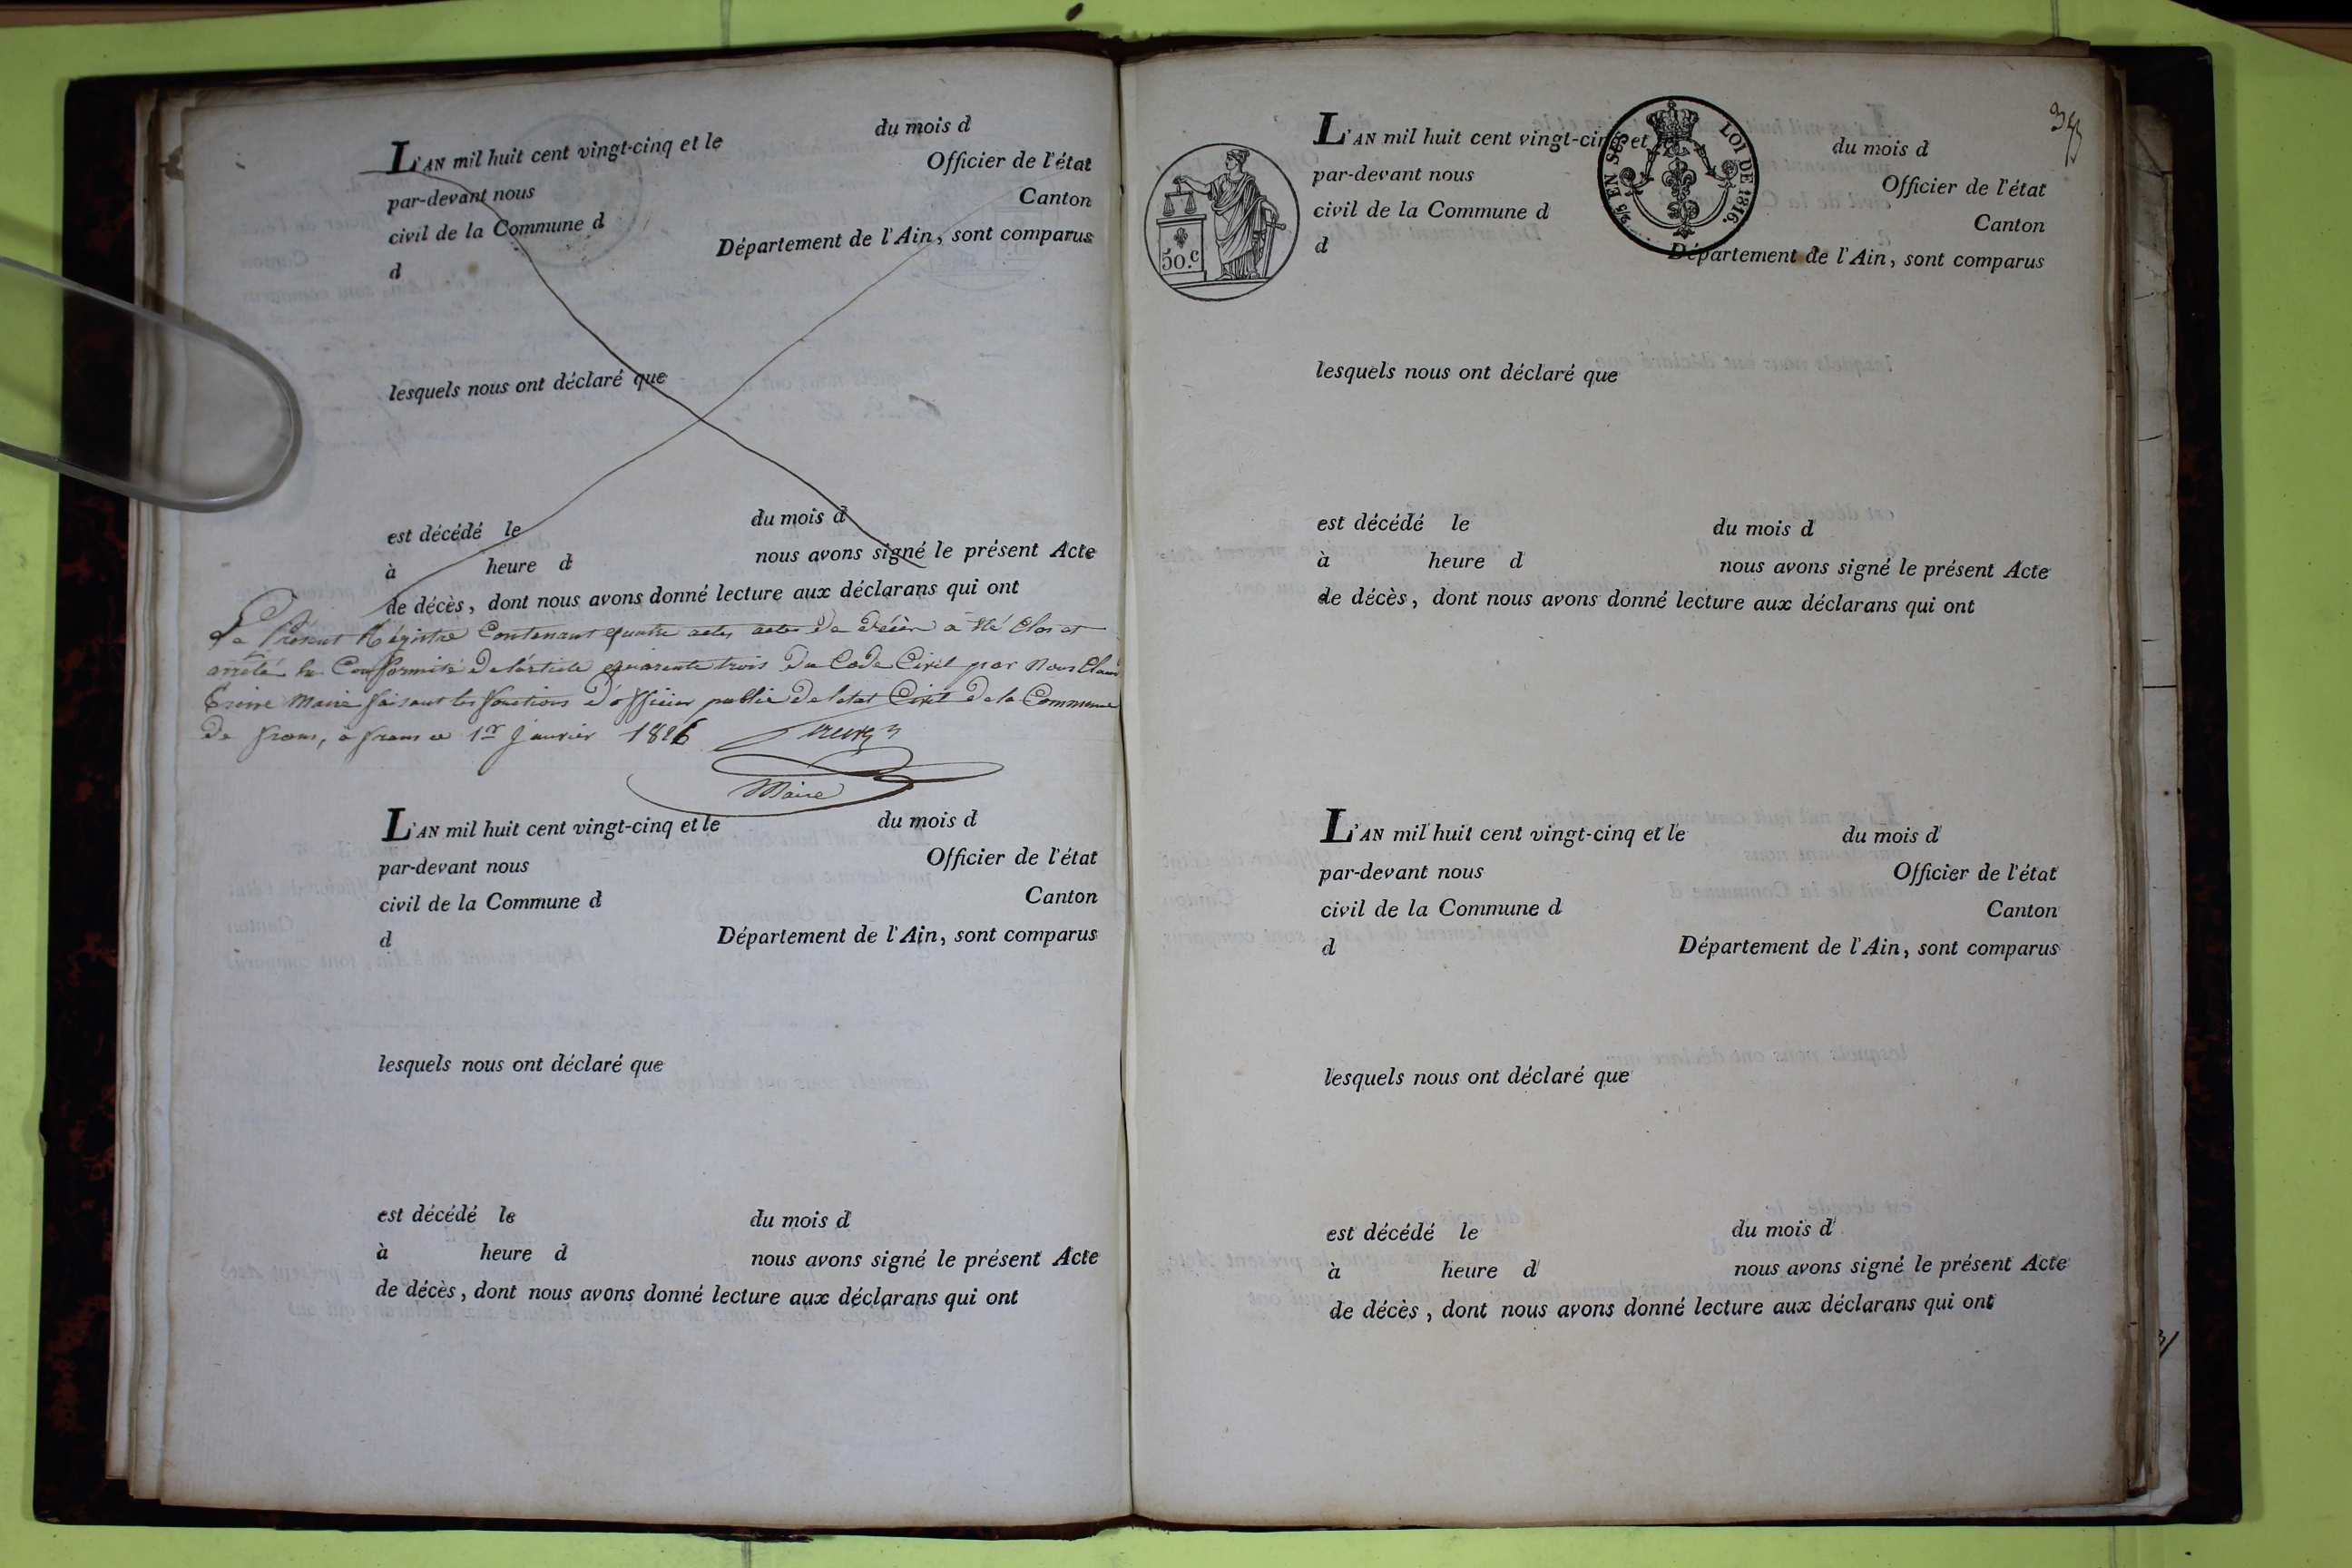 L'AN mil huit cent vingt-cinq et le du mois d
par-devant nous Officier de l'état
civil de la Commune d Canton
d Département de l'Ain, sont comparus
lesquels nous ont déclaré que
est décédé le du mois d
à heure d nous avons signé le présent Acte
de décès, dont nous avons donné lecture aux déclarans qui ont
Le Présent Régistre Contenant quatre actes actes De Décès a été Clos et
arrêté en Conformité De l'article quarante trois Du Code Civil par Nous
Maire faisant les fonctions D'officier public De l'état Civil De la Commune
De frans, à frans ce 1er Janvier 1826
Maire
L'AN mil huit cent vingt-cinq et le du mois d
par-devant nous Officier de l'état
civil de la Commune d Canton
d Département de l'Ain, sont comparus
lesquels nous ont déclaré que
est décédé le du mois d
à heure d nous avons signé le présent Acte
de décès, dont nous avons donné lecture aux déclarans qui ont
50.c
EN SUS
LOI DE 1816.
L'AN mil huit cent vingt-cinq et du mois d
par-devant nous Officier de l'état
civil de la Commune d Canton
d Département de l'Ain, sont comparus
lesquels nous ont déclaré que
est décédé le du mois d
à heure d nous avons signé le présent Acte
de décès, dont nous avons donné lecture aux déclarans qui ont
L'AN mil huit cent vingt-cinq et le du mois d
par-devant nous Officier de l'état
civil de la Commune d Canton
d Département de l'Ain, sont comparus
lesquels nous ont déclaré que
est décédé le du mois d
à heure d nous avons signé le présent Acte
de décès, dont nous avons donné lecture aux déclarans qui ont